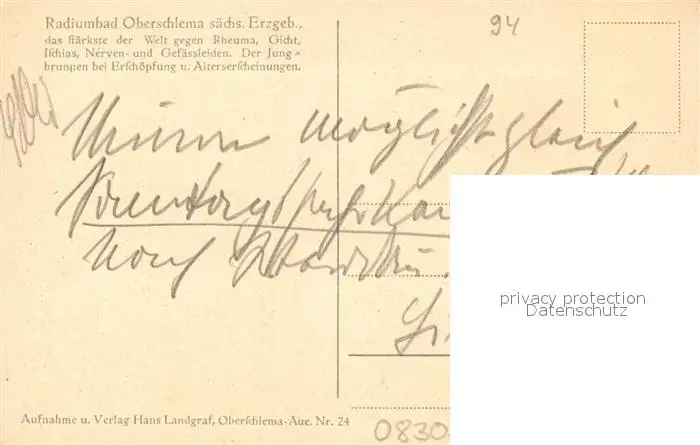 Radiumbad Oberschlema sächs. Erzgeb.,
das stärkste der Welt gegen Rheuma, Gicht,
Ischias, Nerven- und Gefässleiden. Der Jung=
brunnen bei Erschöpfung u. Alterserscheinungen.
94
möglichst gleich
Sonntagsfahrkar
nach
privacy protection
Datenschutz
Aufnahme u. Verlag Hans Landgraf, Oberschlema-Aue. Nr. 24
0830